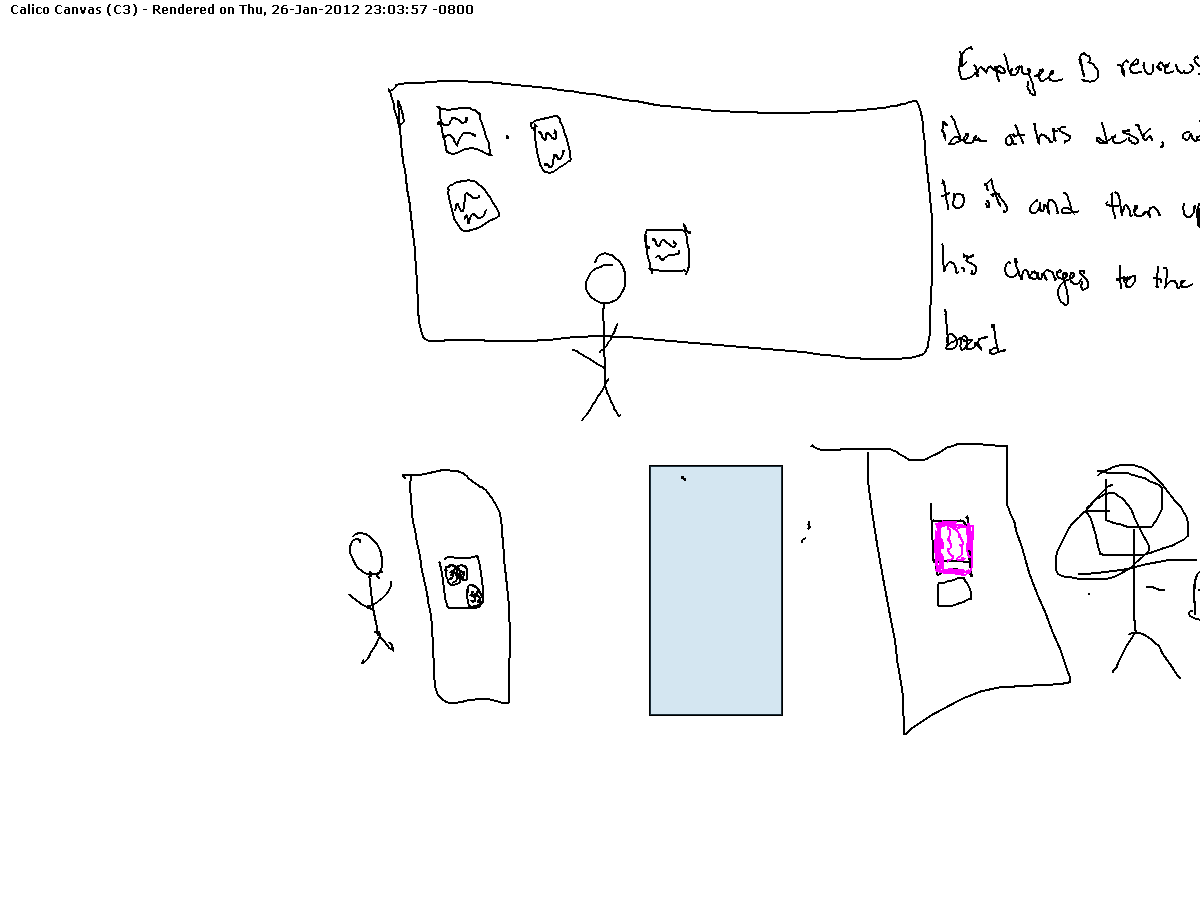 Calico Canvas (C3) - Rendered on Thu, 26-Jan-2012 23:03:57 -0800
Employee B reviews
idea at his desk, ad
to it and then up
his changes to the
board